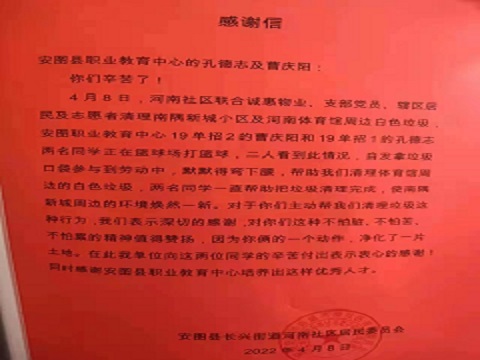 感谢信
安图县职业教育中心的孔德志及曹庆阳：
你们辛苦了！
4月8日，河南社区联合诚惠物业、支部党员、辖区居
民及志愿者清理南隅新城小区及河南体育馆周边白色垃圾，
安图职业教育中心19单招2的曹庆阳和19单招1的孔德志
两名同学正在篮球场打篮球，二人看到此情况，自发拿垃圾
口袋参与到劳动中，默默得弯下腰，帮助我们清理体育馆周
边的白色垃圾，两名同学一直帮助把垃圾清理完成，使南隅
新城周边的环境焕然一新。对于你们主动帮我们清理垃圾这
种行为，我们表示深切的感谢，对你们这种不怕脏、不怕苦、
不怕累的精神值得赞扬，因为你俩的一个动作，净化了一片
土地。在此我单位向这两位同学的辛苦付出表示衷心的感谢！
同时感谢安图县职业教育中心培养出这样优秀人才。
安图县长兴街道河南社区居民委员会
2022年4月8日